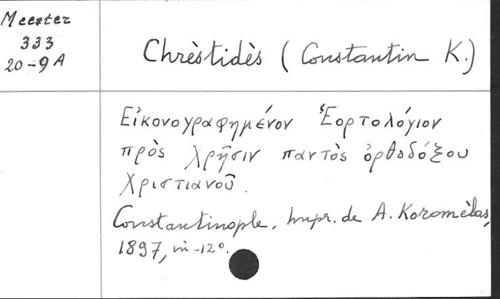 Meester
333
20-9A
Chrèstidès (Constantin K.)
Εἰκονογραφημένον Ἑορτολόγιον
πρὸς χρῆσιν παντὸς ὀρθοδόξου
Χριστιανοῦ.
Constantinople, Impr. de A. Koromèlas,
1897, in-12°.